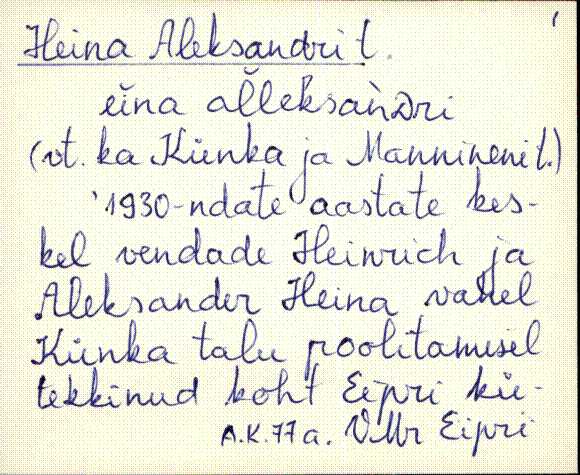 Heina Aleksandri t.
eĭna aĺĺeksaǹDri
(vt. ka Künka ja Mannineni t.)
1930-ndate aastate kes-
kel vendade Heinrich ja
Aleksander Heina vahel
Künka talu poolitamisel
tekkinud koht Eipri kü-
A.K.77a. VMr Eipri